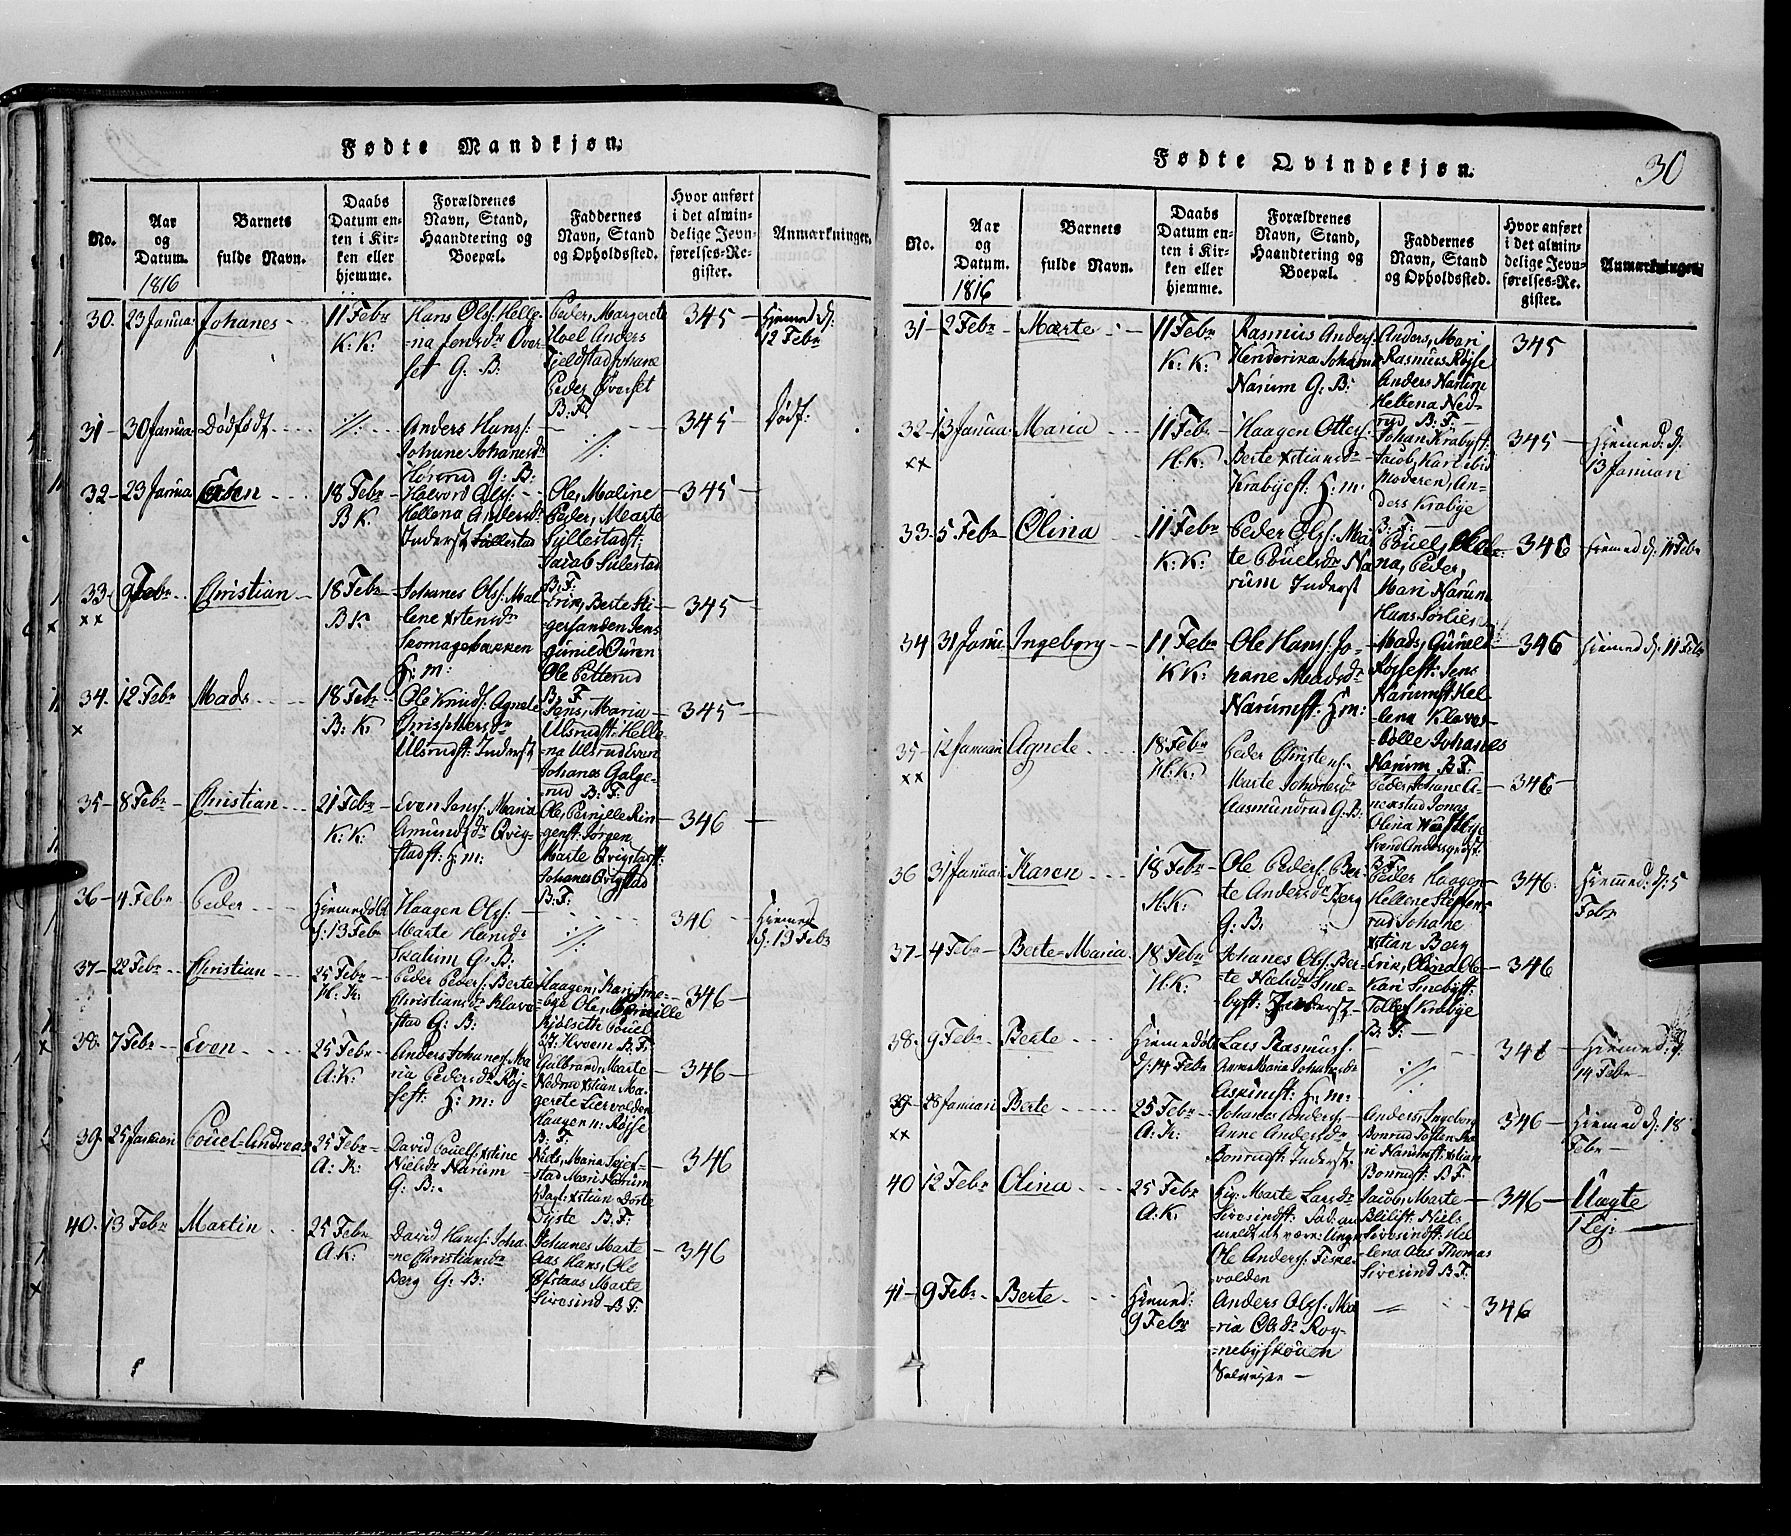 Fødte Mandkjøn.
No.
Aar og Datum. 1816
Barnets fulde Navn.
Daabs Datum enten i Kirken eller hjemme.
Forældrenes Navn, Stand, Haandtering og Boepæl.
Faddernes Navn, Stand og Opholdssted.
Hvor anført i det almindelige Jevnførelses-Register.
Anmærkninger.
30. 23 Janua: Johanes 11 Febr K: K:
Hans Ols: Helle-
-na Jensdr Over-
set G: B:
Peder, Margrete
Hoel Anders
Fjeldstad Johane
Peder Overset
B: F:
345
Hiemed d:
12 Febr
31 30 Janua: Dødfødt
Anders Hans:
Johane Johanesdr
G: B:
345
Dødf:
32 23 Janua 18 Febr B K:
Halvord Ols:
Hellena Andersdr
Inderst
Ole, Maline
Peder, Marte
Syllestadst:
Jacob Sulestad
B: F:
345
33 9 Febr Christian 18 Febr B K
xx
Johanes Ols: Mal-
lene xstensdr
Skomagebakken
H: m:
Erik, Berte Sti-
gersanden Jens
Gunild
Ole Petterud
B: F
345
34. 12 Febr Mads 18 Febr B: K:
x
Ole Knuds: Agnete
Ulsrudst: Inderst
Jens, Maria
Ulsrudst: Helle-
-na Ulsrud Even
Johanes Galge-
rud B: F:
345
35 8 Febr Christian 21 Febr K: K:
Even Jens: Maria
Amundsdr Qvig-
stadst: H: m:
Ole, Pernille Rin-
genst: Jørgen
Marte Qvigstadst:
Johanes Qvigstad
B: F:
346
36 4 Febr Peder Hiemedøbt
d: 13 Febr
Haagen Ols:
Marte Hansdr
Skalim G: B:
346
Hiemed
d: 13 Febr
37 22 Febr Christian 25 Febr H: K:
Peder Peders: Berte
Christiansdr Klave-
stad G: B:
Haagen, Kari Sme-
-bye Ole, Pernille
Kjølseth Pouel
Hroem B: F:
346
38. 7 Febr Even 25 Febr A: K:
Anders Johanes: Ma
ria Pedersdr Røj-
sest: H: m:
Gulbrand, Marte
Nedrud xstian Ma-
grete Liervolden
Haagen n: Røjse
B: F:
346
39. 25 Januari Pouel-Andreas 25 Febr A: K:
David Pouels: xstine
Nielsdr Narum
G: B:
Niels, Maria
stad Mari Narum
xstian Dorte
B: F:
346
40. 13 Febr Martin 25 Febr A K:
David Hans: Joha-
-ne Christiansdr
Berg G: B:
Johanes Marte
Aas Hans, Ole
Marte
Sivesind B: F:
346
Fødte Qvindekjøn. 30
No.
Aar og Datum. 1816
Barnets fulde Navn.
Daabs Datum enten i Kirken eller hjemme.
Forældrenes Navn, Stand, Haandtering og Boepæl.
Faddernes Navn, Stand og Opholdssted.
Hvor anført i det almindelige Jevnførelses-Register.
Anmærkninger.
31 2 Febr Marte 11 Febr K: K:
Rasmus Anders:
Henderika Johansdr
Narum G: B:
Anders, Mari
Rasmus Røjse
Anders Narum
Hellena Ned-
rud B: F:
345
32 13 Janua: Maria 11 Febr H: K:
xx
Haagen Otters:
Berte xstiansdr
Krabyest: H: m:
Johan Krabyst:
Jacob, Kari ibid
Moderen, An-
ders Krabye
B: F:
345
Hiemed: d:
13 Januari
33. 5 Febr Olina 11 Febr K: K:
Peder Ols: Mar
te Pouelsdr Na
rum Inderst
Pouel,
na, Peder,
Mari Narum
Hans Sørlie
346
Hiemed d: 11 Febr
34 31 Janu: Ingeborg 11 Febr K K:
Ole Hans: Jo-
hane Madsdr
Narumst: H: m:
Mads, Guneld
Røjsest: Jens
Narumst: Hel
lena Klaves-
-bølle Johanes
Narum B: F:
346
Hiemed d: 11 Febr
35 12 Januari Agnete 18 Febr H: K:
xx
Peder Christens:
Marte Johanesdr
Aasmundrud G: B:
Peder, Johane
Jonas
Olina
B: F:
346
36 31 Januar: Karen 18 Febr H: K:
Ole Peders: Ber-
te Andersdr Berg
G: B.
Peder Haagen
Hellene Steffens-
rud Johane
xstian Berg
346.
Hiemed: d: 5
Febr
37 4 Febr Berte-Maria 18 Febr H: K:
Johanes Ols: Ber-
te Nielsdr Sme-
byst: Inderst
Erik, Olina Ole
Kari Smebyst:
Tollef Krabye
B: F:
346
38. 9 Febr Berte Hiemedøbt
d: 14 Febr
Lars Rasmus:
Anne Maria Johanesdr
Askimst: H: m:
346
Hiemed: d:
14 Febr
39 28 Januari Berte 25 Febr A: K:
xx
Johanes Anders:
Anne Andersdr
Bonrudst: Inderst
Anders, Ingeborg
Bonrud Tosten Ka
ri Narumst: xstian
Bonrudst: B F:
346
Hiemed d: 18
Febr
40 12 Febr Olina 25 Febr A: K:
Pig: Marte Larsdr
Sivesindst: Fad: an
meldt at være: Ungk:
Ole Anders: Fiske-
volden
Jacob, Marte
Blilist: Niels
Sivesindst: Hel
-lena Aas Thomas
Sivesind B F:
346
Uægte
1 Lej:
41 9 Febr Berte Hiemed:
9 Febr
Anders Ols: Ma
-ria Olsdr Rog-
-nebyskoven
346